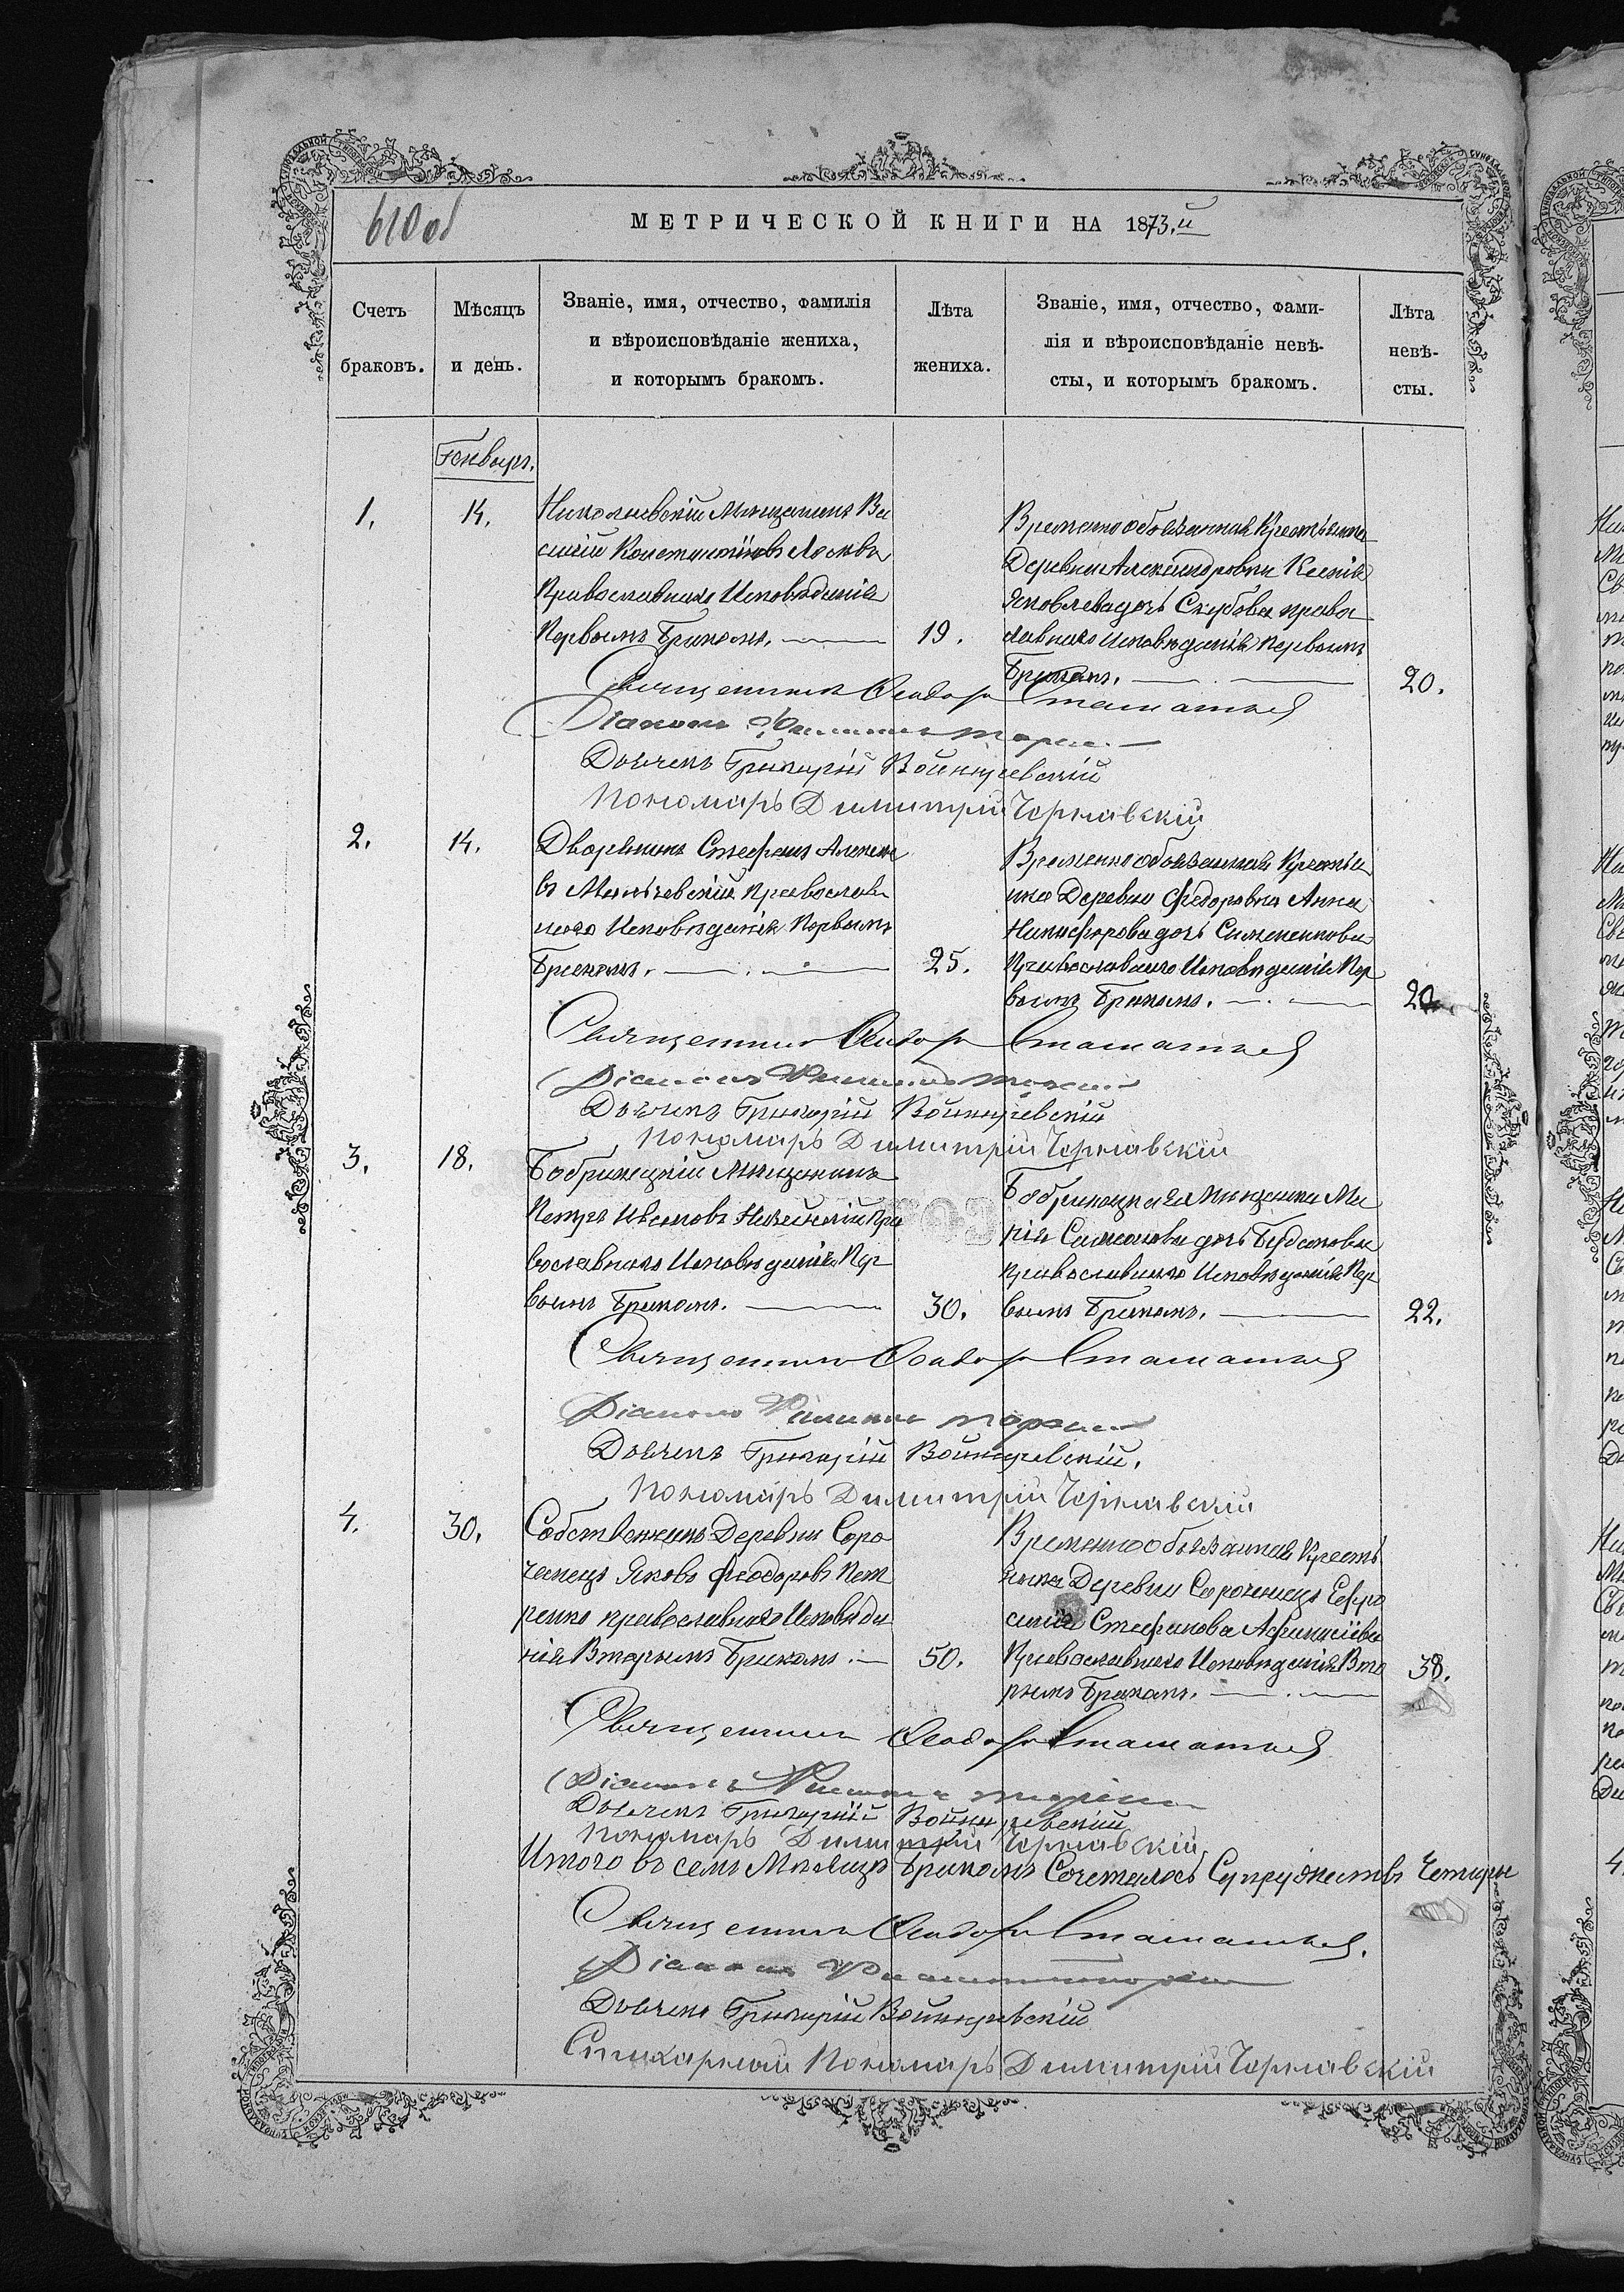 610 об
МЕТРИЧЕСКОЙ КНИГИ НА 1873.й
Счетъ браковъ.
Мѣсяцъ и день.
Званіе, имя, отчество, фамилія
и вѣроисповѣданіе жениха,
и которымъ бракомъ.
Лѣта жениха.
Званіе, имя, отчество, фами-
лія и вѣроисповѣданіе невѣ-
сты, и которымъ бракомъ.
Лѣта невѣ-
сты.
Генварь.
1.
14.
Николаевскій Мѣщанинъ Ва
силій Константіновъ
Православнаго Исповѣданія
Первымъ Бракомъ.
19.
Временнообязанная Крестьянка
Деревни Александровки Ксенія
Яковлева дочь Скубова право
славнаго исповѣданія первымъ
Бракомъ.
20.
Священникъ Ѳеодоръ
Діаконъ Филиппъ
Дьячекъ Григорій
Пономарь Димитрій Чернавскій
2.
14.
Дворянинъ Стефанъ Алексѣе
въ Православ
наго Исповѣданія Первымъ
Бракомъ.
25.
Временнообязанная Крестья
нка Деревни Федоровки Анна
Никифорова дочь
Православнаго Исповѣданія Пер
вымъ Бракомъ.
20.
Священникъ Ѳеодоръ
Діаконъ Филиппъ
Дьячекъ Григорій
Пономарь Димитрій Чернавскій
3.
18.
Бобринецкій Мѣщанинъ
Петръ Ивановъ Пра
вославнаго Исповѣданія Пер
вымъ Бракомъ.
30.
Бобринецкая Мѣщанка Ма
рія Симонова дочь
православнаго Исповѣданія Пер
вымъ Бракомъ.
22.
Священникъ Ѳеодоръ
Діаконъ Филиппъ
Дьячекъ Григорій
Пономарь Димитрій Чернавскій
4.
30.
Собственникъ Деревни Соро
чанецъ Яковъ Феодоровъ Пет
ренко православнаго Исповѣда
нія Вторымъ Бракомъ.
50.
Временнообязанная Кресть
янка Деревни Сорочанецъ Ефро
синія Стефанова
Православнаго Исповѣданія Вто
рымъ Бракомъ.
38.
Священникъ Ѳеодоръ
Діаконъ Филиппъ
Дьячекъ Григорій
Пономарь Димитрій Чернавскій
Итого въ семъ Мѣсяцѣ Бракомъ Сочеталось Супружествъ Четыри
Священникъ Ѳеодоръ
Діаконъ
Дьячекъ Григорій
Стихарный Пономарь Димитрій Чернавскій